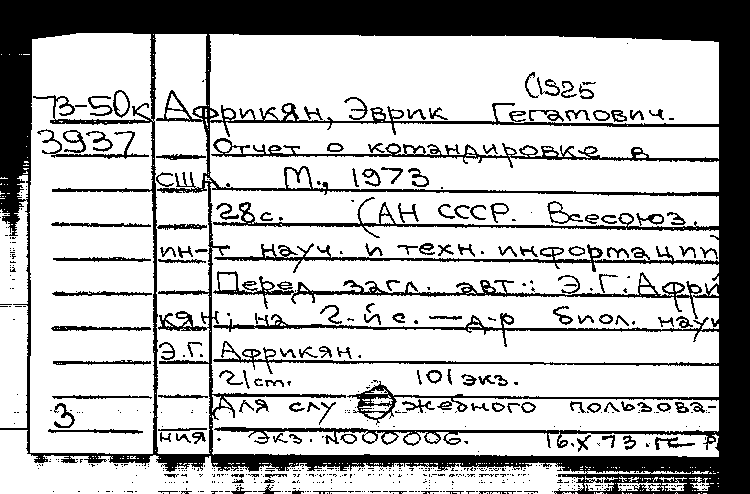 (1925
73-50к Африкян, Эврик Гегатович.
3937 Отчет о командировке в
США. М., 1973.
28с. (АН СССР. Всесоюз.
ин-т науч. и техн. информации
Перед загл. авт.: Э.Г. Афри
кян; на 2-й с. — д-р биол. наук
Э.Г. Африкян.
2/ст. 101 экз.
3 Для слу жебного пользова-
ния. Экз. N000006. 16.X.73.